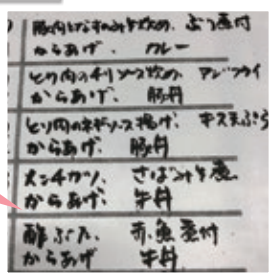 豚肉となすのみそ炒め、ぶり煮付
からあげ、カレー
とり肉のチリソース炒め、アジフライ
からあげ、豚丼
とり肉のネギソース揚げ、キス天ぷら
からあげ、豚丼
メンチカツ、さばみそ煮
からあげ、牛丼
酢ぶた、赤魚煮付
からあげ 牛丼